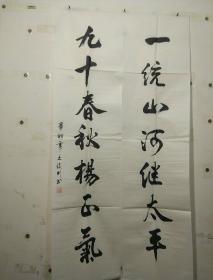 一统山河继太平
九十春秋杨正气